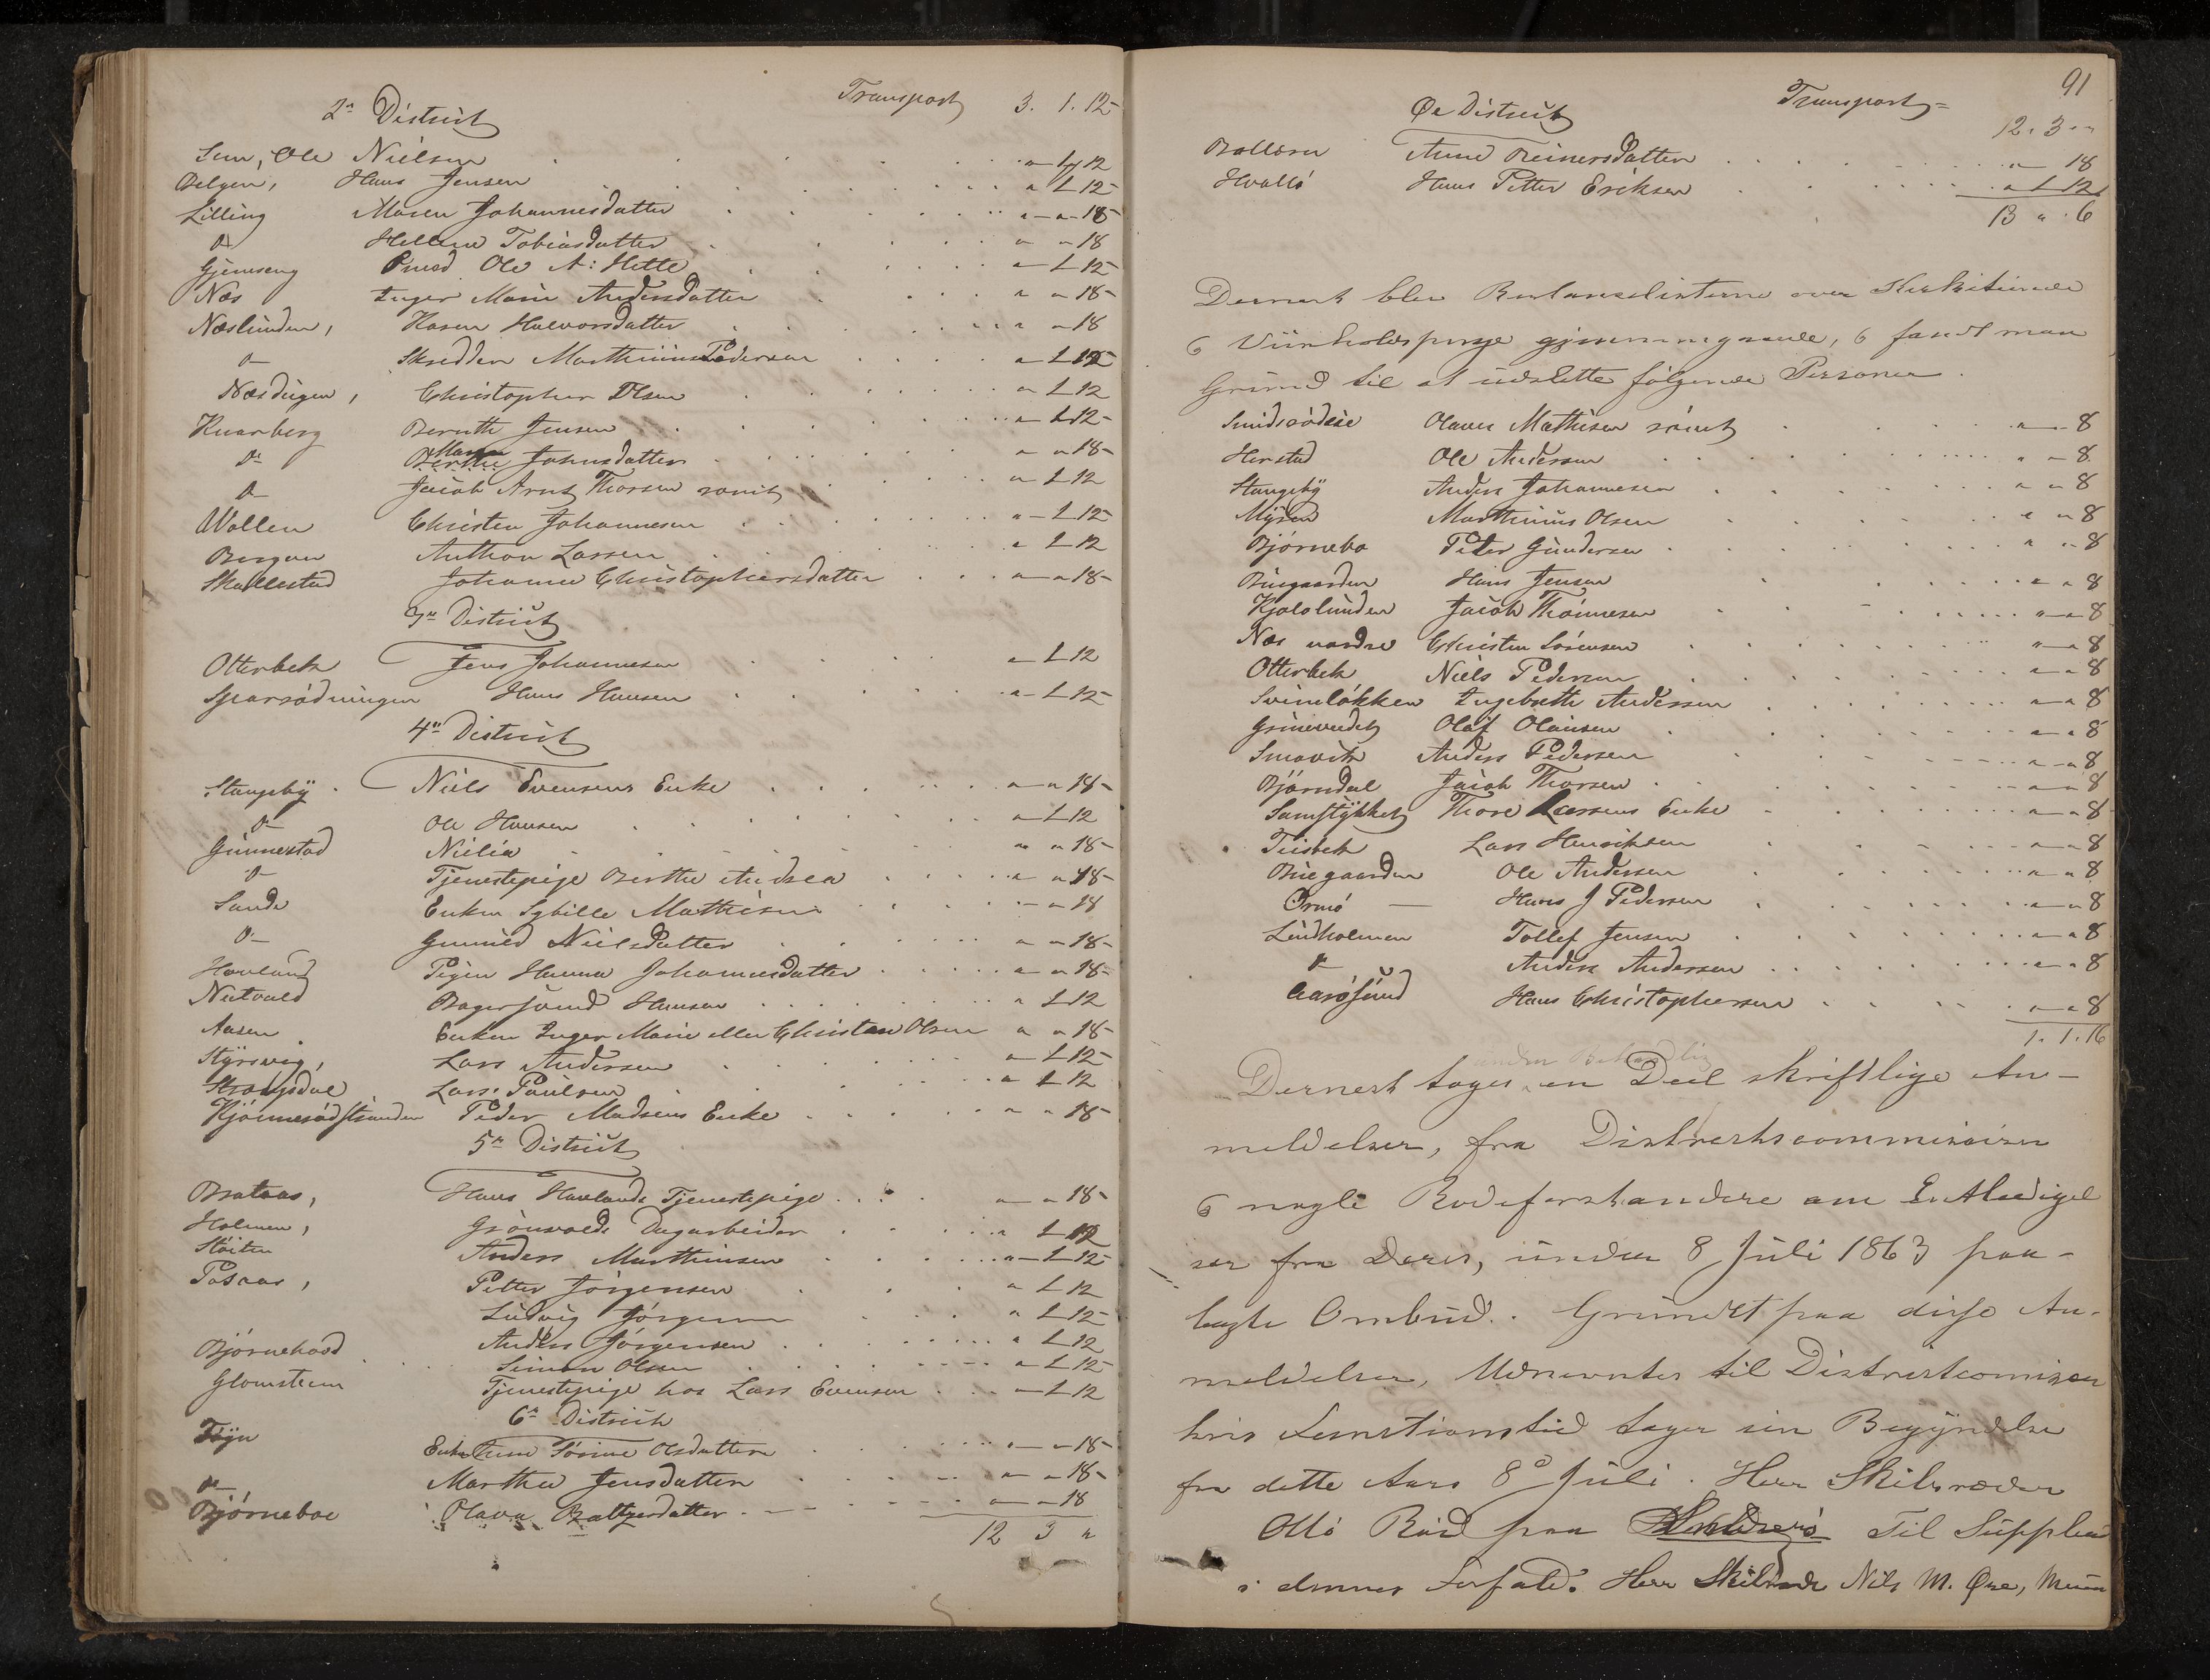 Transport 3. 1. 12-
2n District
Sem, Ole Nielsen " 1 12
Bolgen, Hans Jensen " 1 12-
Lilling Maren Johannesdatter " " 18-
D- Helene Tobiasdatter " " 18
Gjennseng Ole A: Hette " 1 12-
Næs Inger Marie Andersdatter " " 18-
Næslunden, Karen Halvorsdatter " " 18
D- Skredder Marthinius Pedersen " 1 12
Næsdingen, Christopher Olsen " 1 12
Knarberg Bernth Jensen " 1 12-
D- Maren Johnsdatter " " 18-
D- Jacob Arnt Thorsen " 1 12
Wollen Christen Johannesen " 1 12-
Bergan Anthon Larsen " 1 12
Skallestad Johanne Christophersdatter " " 18-
3n District
Otterbek Jens Johannesen " 1 12
Hans Hansen " 1 12-
4n District
Stangeby Niels Evensens Enke " " 18-
D- Ole Hansen " 1 12
Gunnestad Nielia " " 18-
D- Tjenestepige Berthe Andrea " " 18-
Sande Enken Sybille Mathisen " " 18
D- Gunild Nielsdatter " " 18-
Havland Pigen Hanna Johannesdatter " " 18-
Hansen " 1 12
Aasen Enken Inger Marie eller Christian Olsen " " 18-
Styrsvig, Lars Andersen " 1 12-
Lars Paulsen " 1 12
Kjønnerødstranden Peder Madsens Enke " " 18-
5n District
Brataas, Hans Havlands Tjenestepige " " 18-
Holmen, Grønvolds Dagarbeider " 1 12
Støiten Anders Marthinsen " 1 12-
Petter Jørgensen " 1 12
Ludvig Jørgensen " 1 12-
Bjørnehood Anders Jørgensen " 1 12
Simon Olsen " 1 12-
Glomsteen Tjenestepige hos Lars Evensen " 1 12
6n District
Enke Sørine Olsdatter " " 18-
D- Marthea Jensdatter " " 18-
Bjørneboe Olava Baltzersdatter " " 18
12 3 "
91
Transport
Øe District 12. 3 "
Bollæren Anne Reinersdatter " 18
Hvallø Hans Petter Eriksen " 1 12
13 " 6
Dernæst blev Restanselisterne over
gjennemgaaede, fandt man
Grund til at udslette følgende Personer
Smidsrødåse Olaves Mathisen " " 8
Herstad Ole Andersen " " 8
Stangeby Anders Johannesen " " 8
Myren Marthinius Olsen " " 8
Bjørnebo Peter Gundersen " " 8
Buegaarden Hans Jensen " " 8
Kjololunden Jacob Thommesen " " 8
Næs nordre Christen Sørensen " " 8
Otterbek Niels Pedersen " " 8
Svineløkken Ingebreth Andersen " " 8
Grimevedet Olaf Olausen " " 8
Smørvik Anders Pedersen " " 8
Bjørndal Jacob Thorsen " " 8
Thore Larsens Enke " " 8
Tiisbek Lars Henriksen " " 8
Buegaarden Ole Andersen " " 8
Ormø Hans J Pedersen " " 8
Lindholmen Tollef Jensen " " 8
D- Anders Andersen " " 8
Aarøsund Hans Christophersen " " 8
1. 1. 16
under Behandling
Dernest toges en Deel skriftlige An-
meldelser, fra Districtscommissairer
nogle Rodeforstandere om Entledigel
ser fra Deres, under 8 Juli 1863 paa-
lagte Ombud. Grundet paa disse An-
meldelser, Udnevntes til Districtcomisær
hvis Functionstid tager sin Begyndelse
fra dette Aars 8de Juli. Herr Skibsræder
Otto Røed paa Til Suppleant
i dennes Forfald. Herr Skibsræder Nils M. Øre,